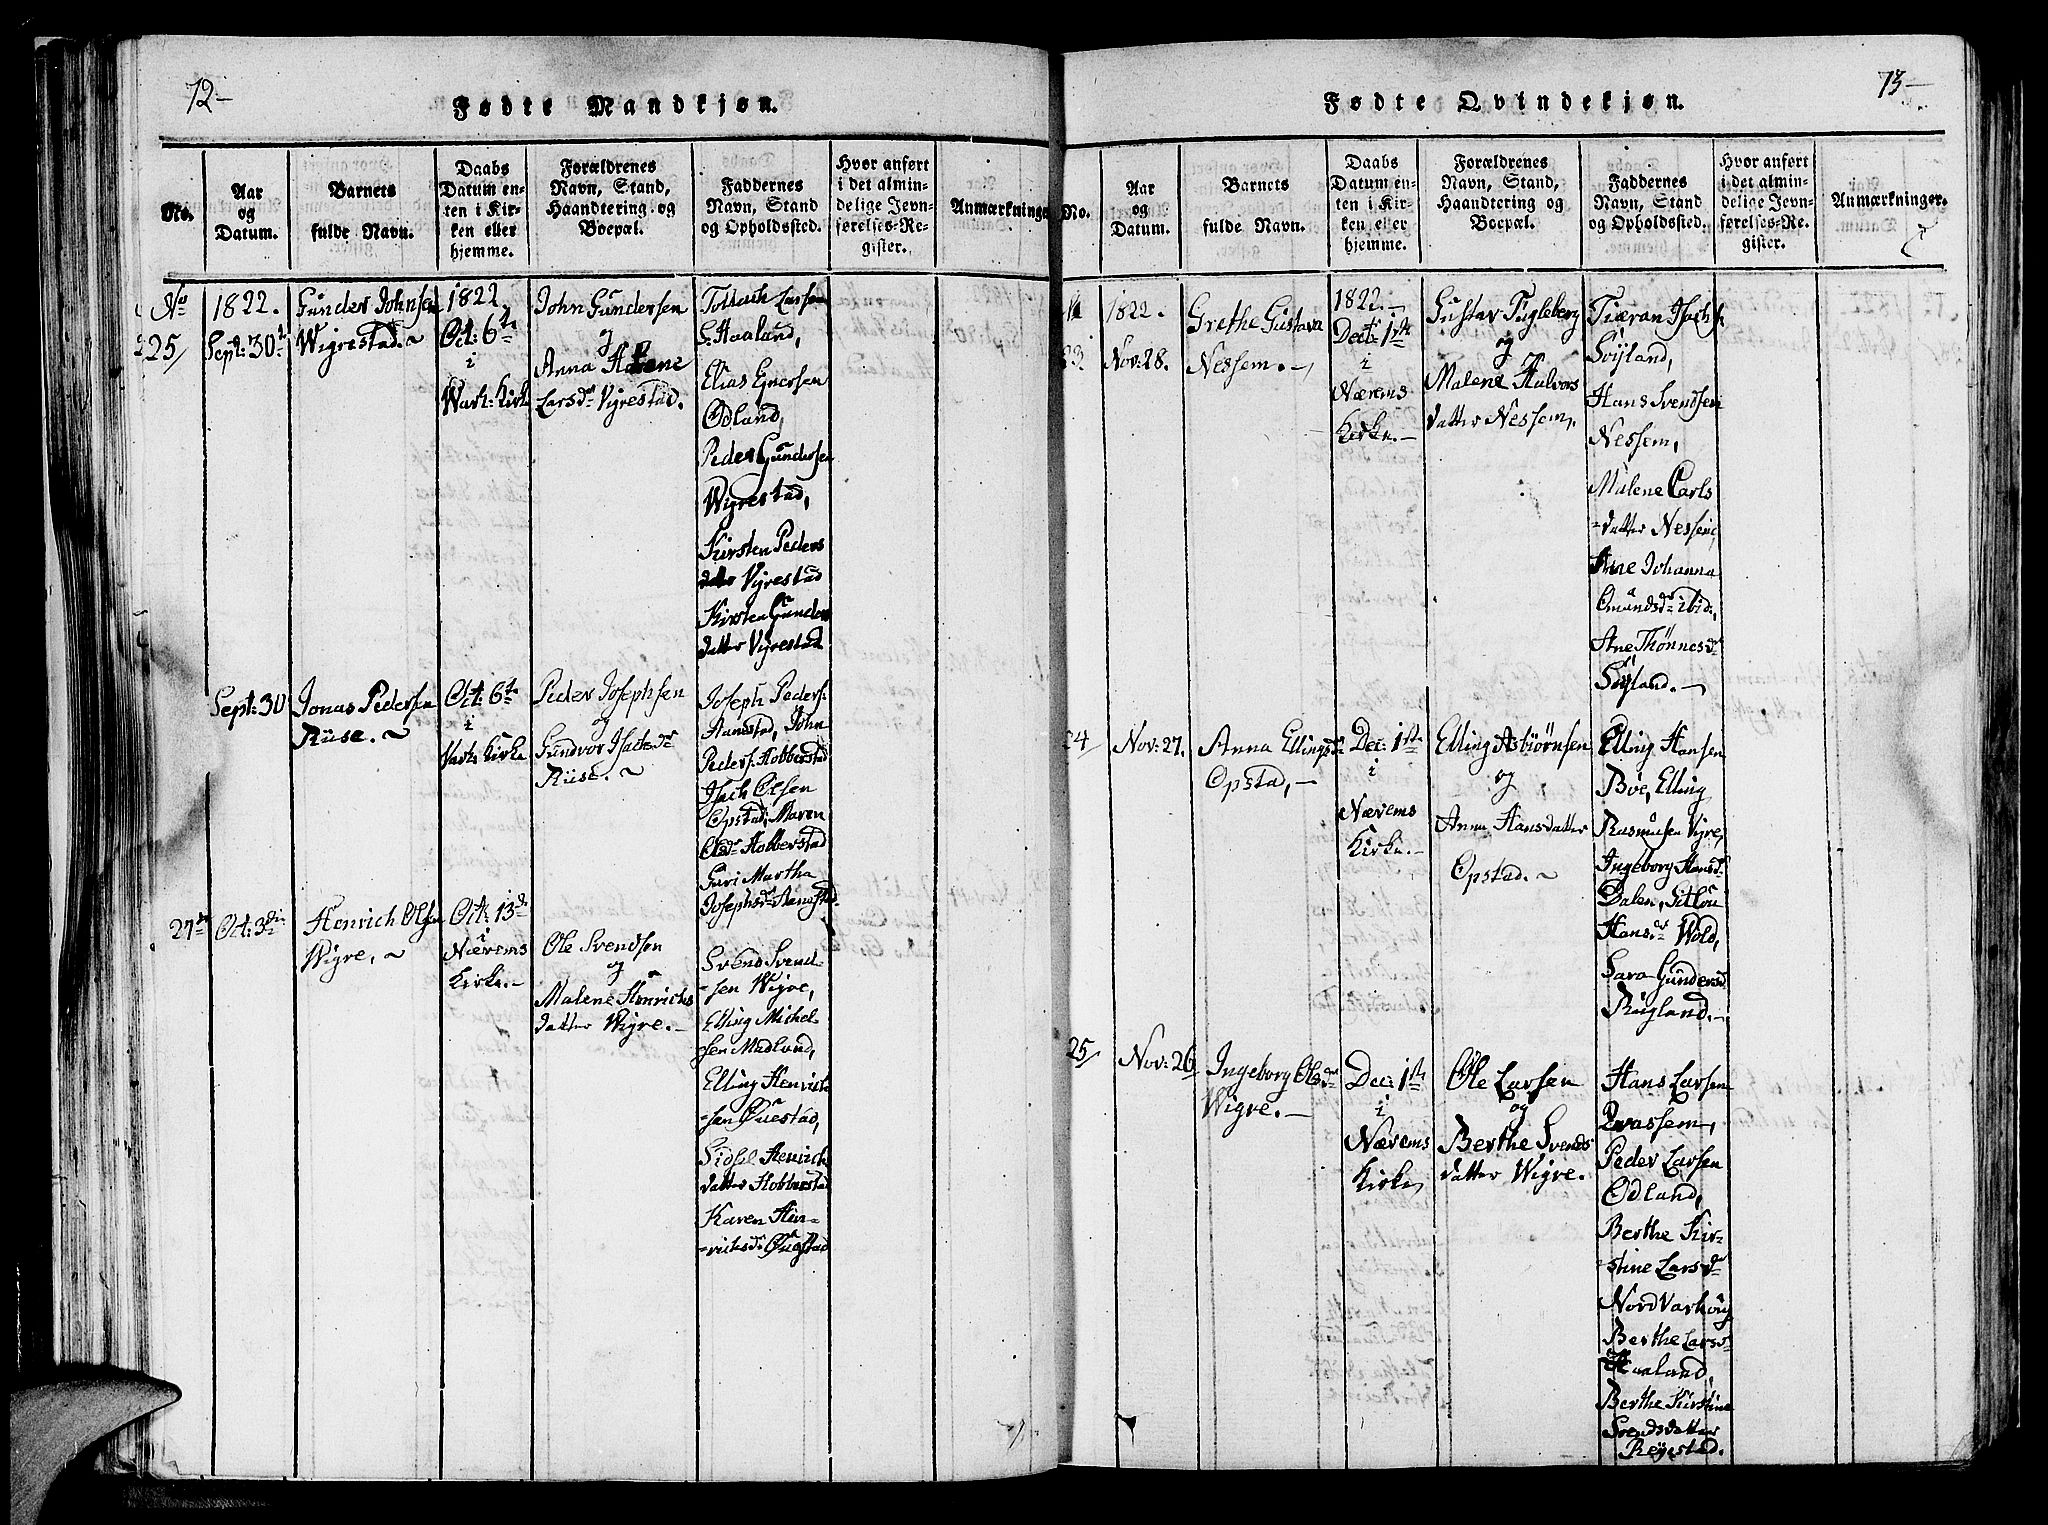 72-
Fødte Mandkjøn.
No.
Aar
og
Datum.
Barnets
fulde Navn.
Daabs
Datum en-
ten i Kir-
ken eller
hjemme.
Forældrenes
Navn, Stand,
Haandtering og
Boepæl.
Faddernes
Navn, Stand
og Opholdssted.
Hvor anført
i det almin-
delige Jevn-
førelses-Re-
gister.
Anmærkninger
No
25/
1822.
Sept: 30te
Gunder Johnsen
Wigrestad. ~
1822.
Oct: 6te
i
Warh: Kirke
John Gundersen
og
Anna Helene
Larsdr Vigrestad.
Tollach Larsen
S. Haaland,
Elias Enersen
Ødland,
Peder Gundersen
Wigrestad,
Kirsten Peders
datter Vigrestad
Kirsten Gunders
datter Vigrestad
Sept: 30
Jonas Pedersen
Riise. ~
Oct: 6te
i
Varh: Kirke
Peder Josephsen
og
Gundvor Isachsdr
Riise. ~
Joseph Peders.
Hanestad, John
Peders. Hobberstad
Isach Olsen
Opstad, Maren
Olsdr Hobberstad
Guri Martha
Josephsdr Hanestad.
27de
Oct: 3die
Henrich Olsen
Wigre, ~
Oct: 13de
i
Nærems
Kirke. -
Ole Svendsen
og
Malene Henrichs
datter Wigre. -
Svend Svend-
-sen Wigre,
Elling Michel-
-sen Madland,
Elling Henrich
-sen Questad,
Sidsel Henrichs
datter Hobberstad
Karen Hen-
-richsdr
73-
Fødte Qvindekjøn.
No.
Aar
og
Datum.
Barnets
fulde Navn.
Daabs
Datum en-
ten i Kir-
ken eller
hjemme.
Forældrenes
Navn, Stand,
Haandtering og
Boepæl.
Faddernes
Navn, Stand
og Opholdssted.
Hvor anført
i det almin-
delige Jevn-
førelses-Re-
gister.
Anmærkninger.
23
1822.
Nov: 28.
Grethe Gustava
Nessem. -
1822. -
Dect: 1ste
i
Nærems
Kirke. -
Gustav Fugleberg
og
Malene Halvors
datter Nessem.
Tiæran Isachs.
Söyland,
Hans Svendsen
Nessem,
Malene Carls
-datter Nessem,
Ane Johanna
Omundsdr ibid.
Ane Thønnesdr
Söyland. -
24/
Nov: 27.
Anna Ellingsdr
Opstad, -
Dec: 1ste
i
Nærems
Kirke. -
Elling Asbiørnsen
og
Anna Hansdatter
Opstad. ~
Elling Hansen
Böe, Elling
Rasmusen Vigre,
Ingeborg Hansdr
Dalen, Sitlou
Hansdr Wold,
Sara Gundersdr
Rügland. -
25/
Nov: 26
Ingeborg Olsdr
Wigre. -
Dec: 1ste
i
Nærems
Kirke,
Ole Larsen
og
Berthe Svends
datter Wigre.
Hans Larsen
Qvassem,
Peder Larsen
Ødland,
Berthe Kir-
-stine Larsdr
Nord Varhoug
Berthe Larsdr
Haaland,
Berthe Kirstine
Svendsdatter
Reyestad.